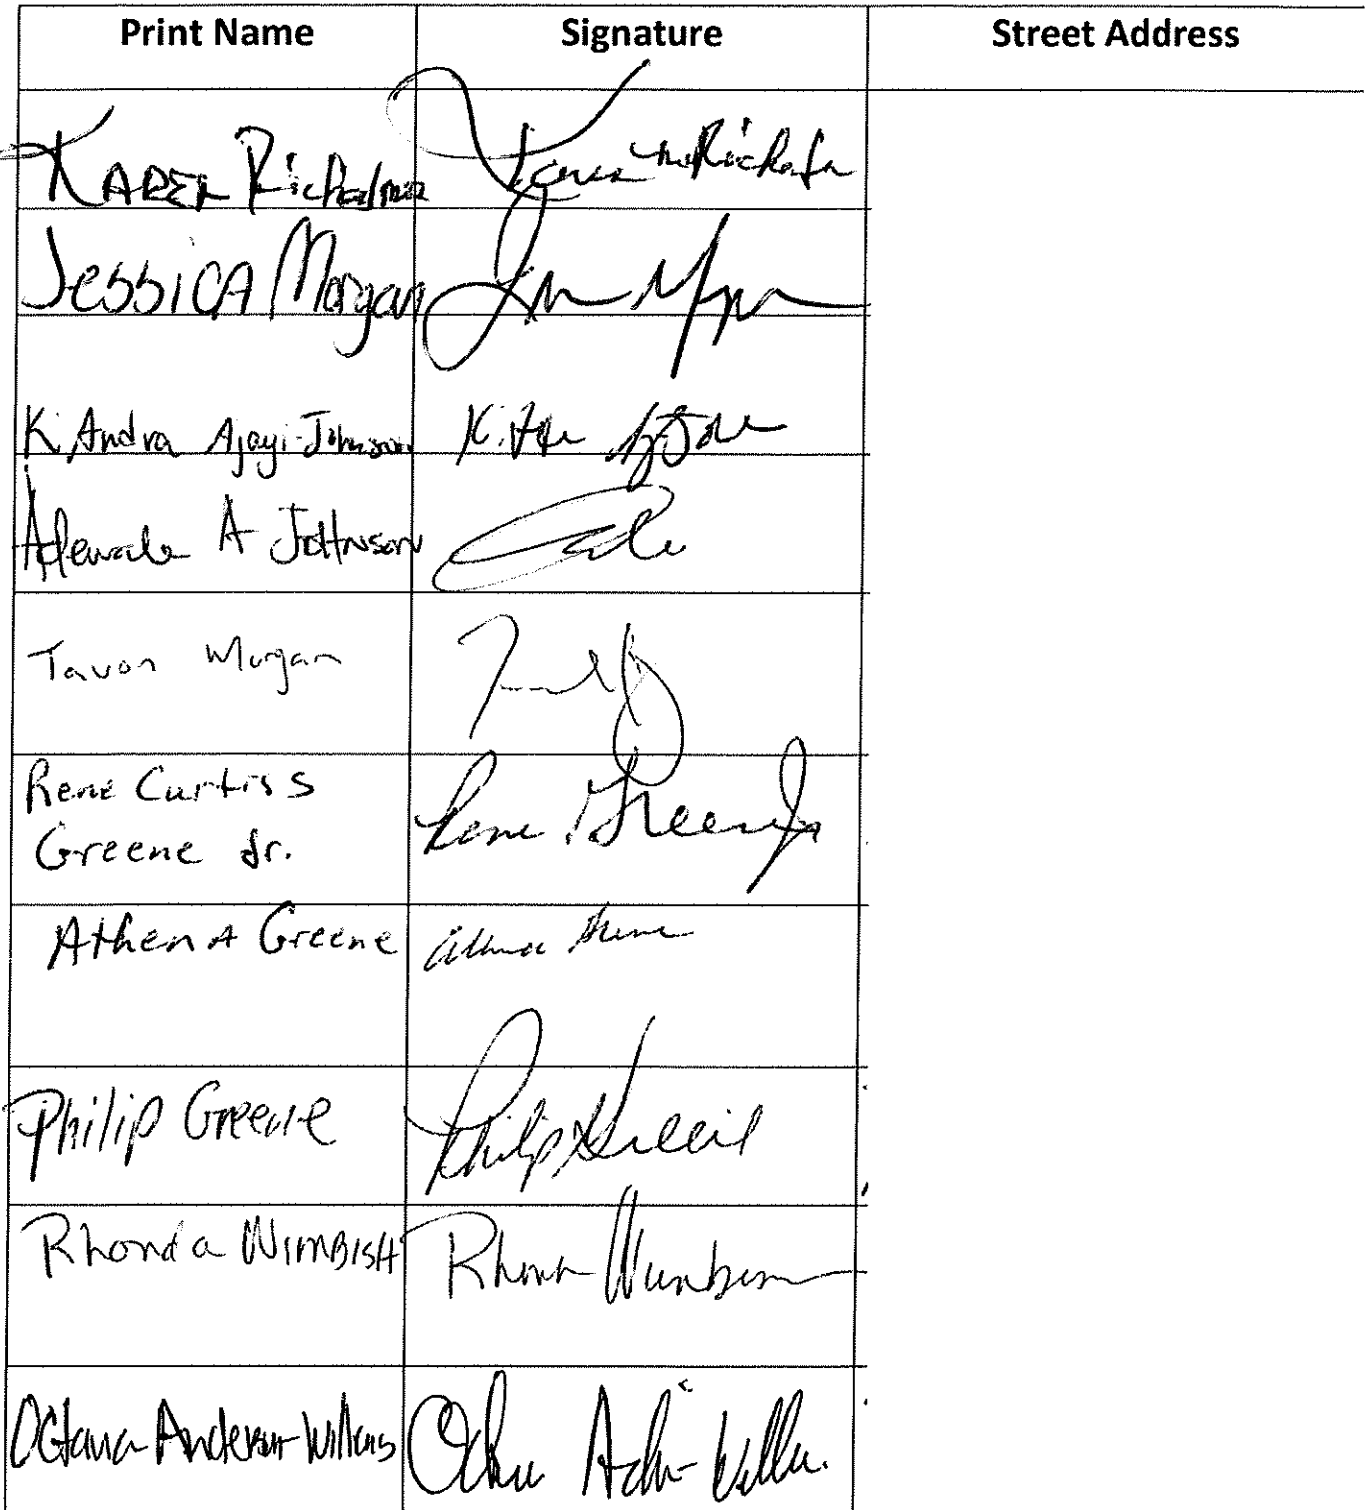 Print Name Signature Street Address
KAREN Richardson
JESSICA Morgan
K. Andra Ajayi-Johnson
Adewale A Johnson
Tavon Morgan
René Curtiss Rene Greene Jr
Greene Jr.
AthenA Greene Athena Greene
Philip Greene Philip Greene
Rhonda WIMBISH Rhonda Wimbish
Octavia Anderson-Wilkins